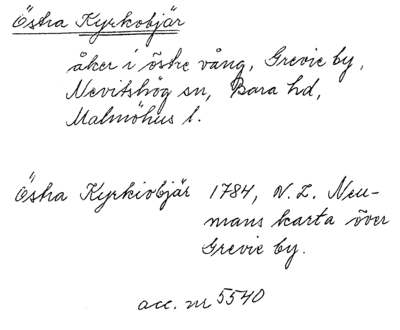 Östra Kyrkobjär
åker i östre vång, Grevie by,
Nevitshög sn, Bara hd,
Malmöhus l.
Östra Kyrkiobjär 1784, N. L. Neu-
mans karta över
Grevie by.
acc. nr 5540